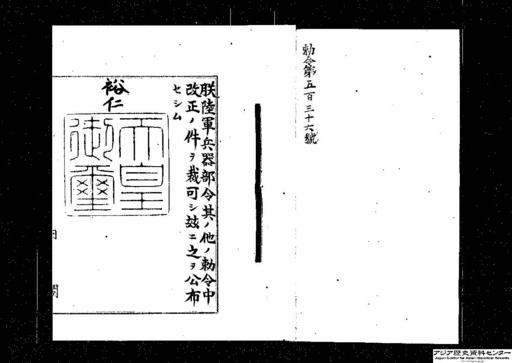 勅令第五百三十六號
朕陸軍兵器部令其ノ他ノ勅令中
改正ノ件ヲ裁可シ玆ニ之ヲ公布
セシム
裕仁
天皇
御璽
内
閣
アジア歴史資料センター
Japan Center for Asian Historical Records